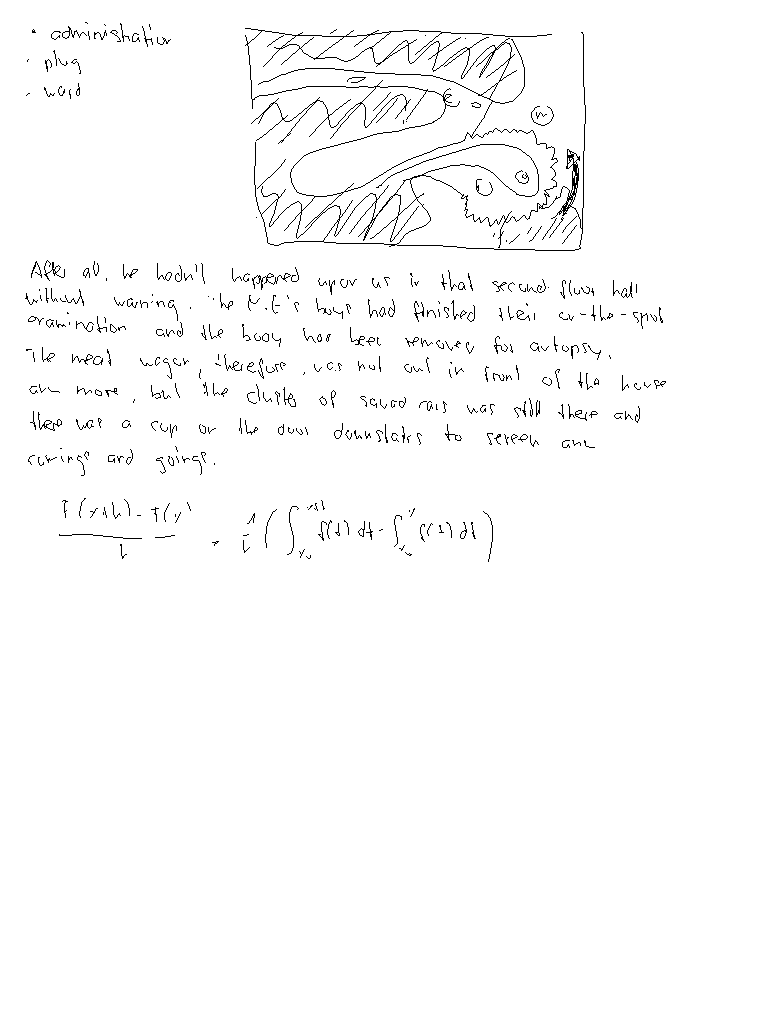 • administration
- plug
- ward
After all, he hadn't happened upon us in that second-floor hall
without warning. The M.E.'s boys had finished their on-the-spot
examination and the body has been removed for autopsy.
The meat wagon, therefore, was not out in front of the house
any more, but the cluster of squad cars was still there and
there was a cop on the door downstairs to screen any
comings and goings.
F(x+h) - F(x) / h = 1/h ( ∫_{x₀}^{x+h} f(t) dt - ∫_{x₀}^{x} f(t) dt )